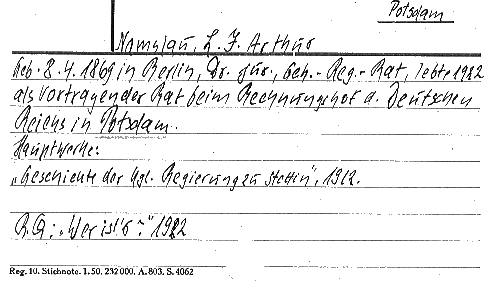 Potsdam
Namslau, L. F. Arthur
Geb. 8. 4. 1869 in Berlin, Dr. jur., Geh.-Reg.-Rat, lebte 1922
als Vortragender Rat beim Rechnungshof d. Deutschen
Reichs in Potsdam.
Hauptwerke:
„Geschichte der Kgl. Regierung zu Stettin", 1912.
„Wer ist's?" 1922
Reg. 10. Stichnote. 1. 50. 232 000. A. 803. S. 4062